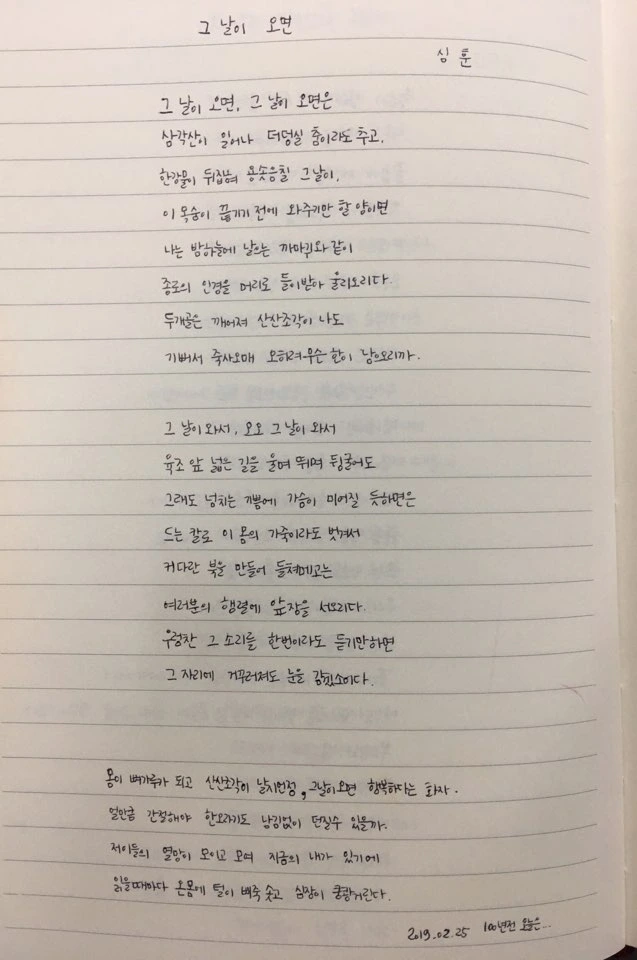 그 날이 오면
심훈
그 날이 오면, 그 날이 오면은
삼각산이 일어나 더덩실 춤이라도 추고,
한강물이 뒤집혀 용솟음칠 그날이,
이 목숨이 끊기기 전에 와주기만 할 양이면
나는 밤하늘에 날으는 까마귀와 같이
종로의 인경을 머리로 들이받아 울리오리다.
두개골은 깨어져 산산조각이 나도
기뻐서 죽사오매 오히려 무슨 한이 남으오리까.
그 날이 와서, 오오 그 날이 와서
육조 앞 넓은 길을 울며 뛰며 뒹굴어도
그래도 넘치는 기쁨에 가슴이 미어질 듯하면은
드는 칼로 이 몸의 가죽이라도 벗겨서
커다란 북을 만들어 들쳐메고는
여러분의 행렬에 앞장을 서오리다.
우렁찬 그 소리를 한번이라도 듣기만하면
그 자리에 거꾸러져도 눈을 감겠소이다.
몸이 뼈가루가 되고 산산조각이 날지언정, 그날이오면 행복하다는 화자.
얼만큼 간절해야 한오라기도 남김없이 던질수 있을까.
저이들의 열망이 모이고 모여 지금의 내가 있기에
읽을때마다 온몸에 털이 삐죽 솟고 심장이 쿵쾅거린다.
2019.02.25 100년전 오늘은...